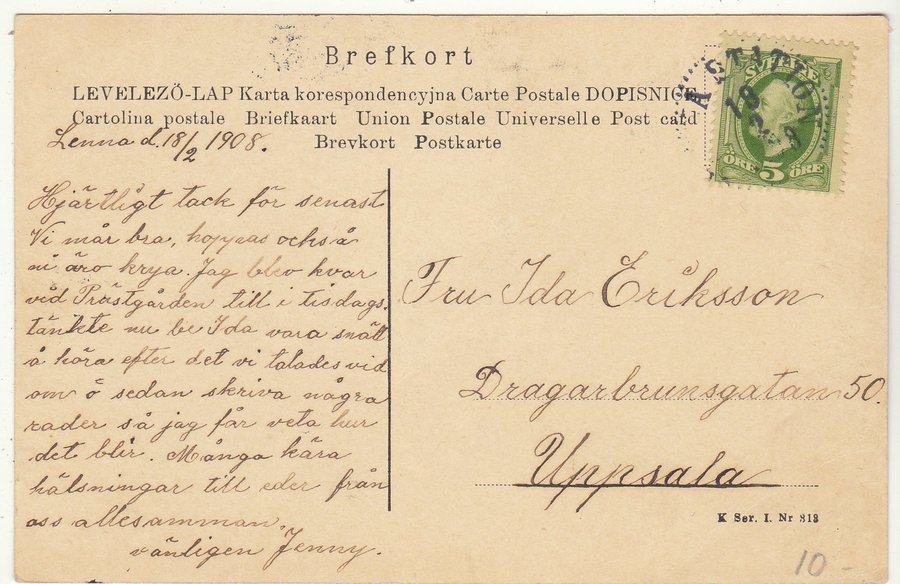 Brefkort
LEVELEZŐ-LAP Karta korespondencyjna Carte Postale DOPISNICE
Cartolina postale Briefkaart Union Postale Universelle Post card
Brevkort Postkarte
Lenna d. 18/2 1908.
Hjärtligt tack för senast
Vi mår bra, hoppas också
ni äro krya. Jag blev kvar
vid Prästgården till i tisdags.
tänkte nu be Ida vara snäll
å höra efter det vi talades vid
om å sedan skriva några
rader så jag får veta hur
det blir. Många kära
hälsningar till eder från
oss allesamman.
vänligen Jenny.
SVERIGE
ÖRE 5 ÖRE
Fru Ida Eriksson
Dragarbrunsgatan 50.
Uppsala
K Ser. I. Nr 313
10-